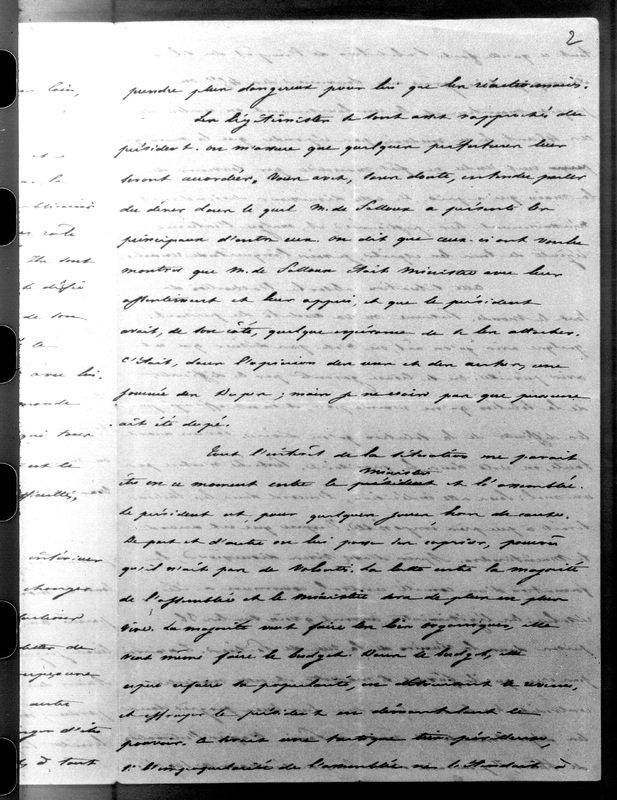 2
prendre plus dangereux pour lui que les réactionnaires.
Les légitimistes se sont assez rapprochés du
président. on m'assure que quelques préfectures leur
seront accordées. Vous avez, sans doute, entendu parler
du dîner dans le quel M. de Falloux a présenté les
principaux d'entre eux. on dit que ceux-ci ont voulu
montrer que M. de Falloux était Ministre avec leur
assentiment et leur appui, et que le président
avait, de son côté, quelque espérance de se les attacher.
C'était, dans l'opinion des uns et des autres, une
journée des Dupes; mais je ne vois pas que personne
ait été dupé.
Tout l'intérêt de la situation me parait
être en ce moment entre le Ministère et l'assemblée.
Le président est, pour quelques jours hors de cause.
De part et d'autre on lui passe ses caprices, pourvu
qu'il n'ait pas de volonté. La lutte entre la majorité
de l'assemblée et le Ministère sera de plus en plus
vive. La majorité veut faire les lois organiques, elle
veut même faire le budget. Dans le budget, elle
espère refaire sa popularité, en diminuant le revenu,
et effrayer le président en démantelant le
pouvoir. Ce serait une tactique très périlleuse,
si l'impopularité de l'assemblée ne s'étendait à
er loin,
et
de son
le
avec lui.
monde
qui tous
est le
difficultés,
intérieur
changer
lutter de
autre
d'été
à tout